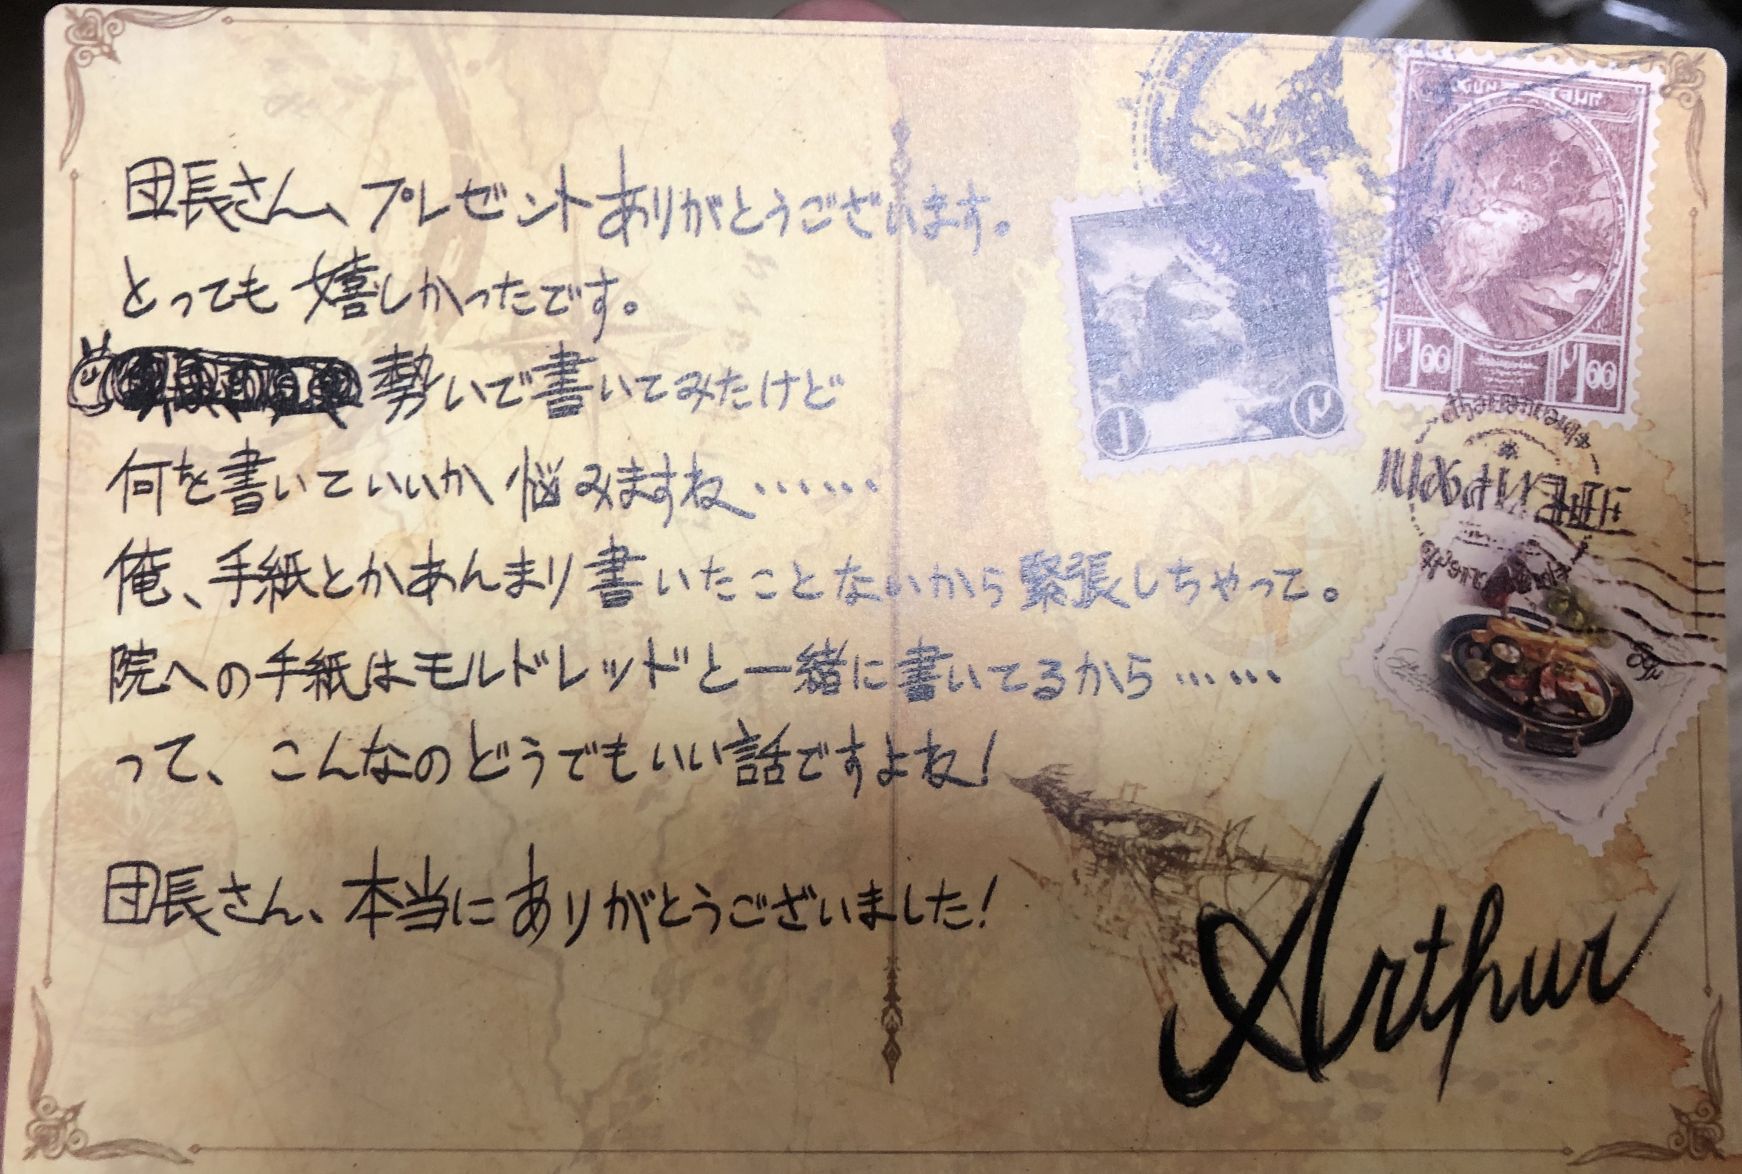 団長さん、プレゼントありがとうございます。
とっても嬉しかったです。
勢いで書いてみたけど
何を書いていいか悩みますね……
俺、手紙とかあんまり書いたことないから緊張しちゃって。
院への手紙はモルドレッドと一緒に書いてるから……
って、こんなのどうでもいい話ですよね!
団長さん、本当にありがとうございました!
Arthur